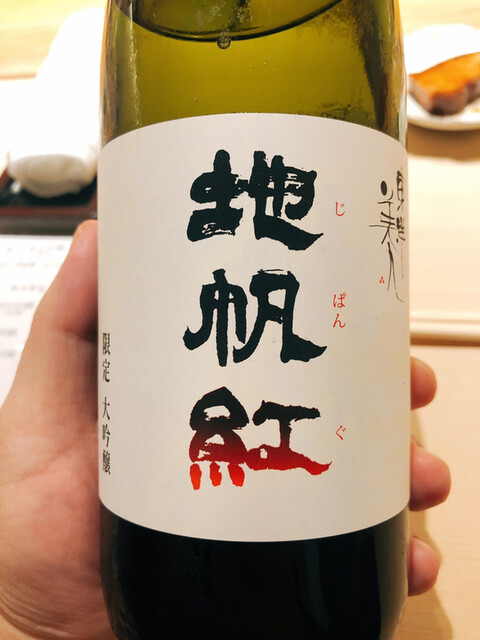 地帆紅
じぱんぐ
限定 大吟醸